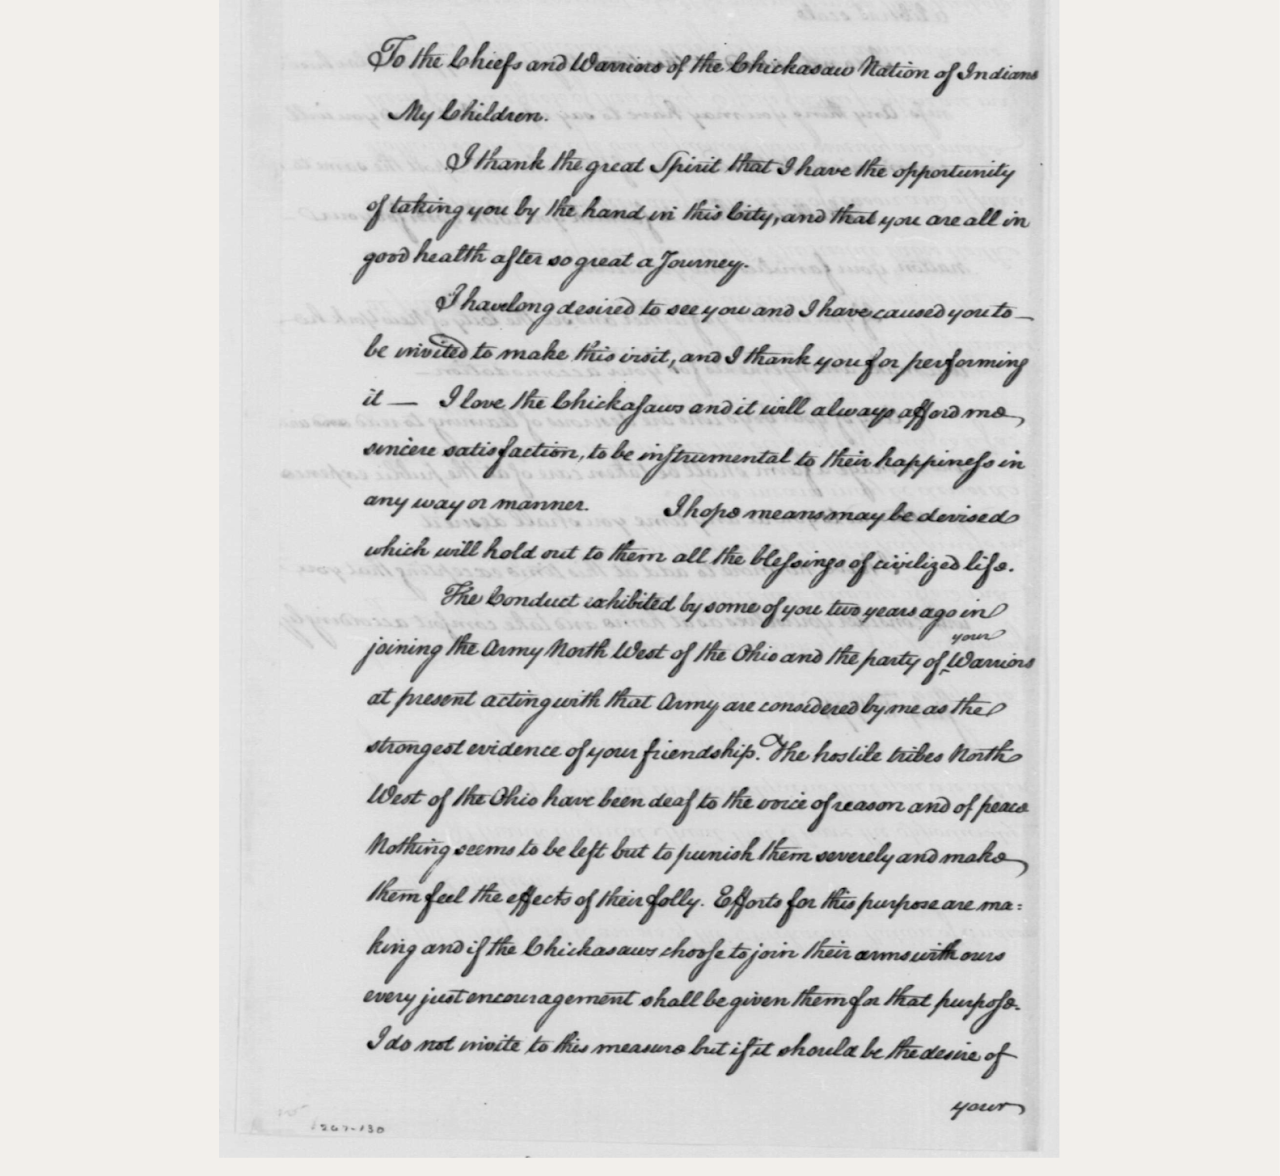 To the Chiefs and Warriors of the Chickasaw Nation of Indians
My Children.
I thank the great Spirit that I have the opportunity
of taking you by the hand in this City, and that you are all in
good health after so great a Journey.
I have long desired to see you and I have caused you to
be invited to make this visit, and I thank you for performing
it — I love the Chickasaws and it will always afford me
sincere satisfaction, to be instrumental to their happiness in
any way or manner. I hope means may be devised
which will hold out to them all the blessings of civilized life.
The Conduct exhibited by some of you two years ago in
your
joining the Army North West of the Ohio and the party of Warriors
at present acting with that Army are considered by me as the
strongest evidence of your friendship. The hostile tribes North
West of the Ohio have been deaf to the voice of reason and of peace
Nothing seems to be left but to punish them severely and make
them feel the effects of their folly. Efforts for this purpose are ma:
king and if the Chickasaws choose to join their arms with ours
every just encouragement shall be given them for that purpose.
I do not invite to this measure but if it should be the desire of
your
1267-130